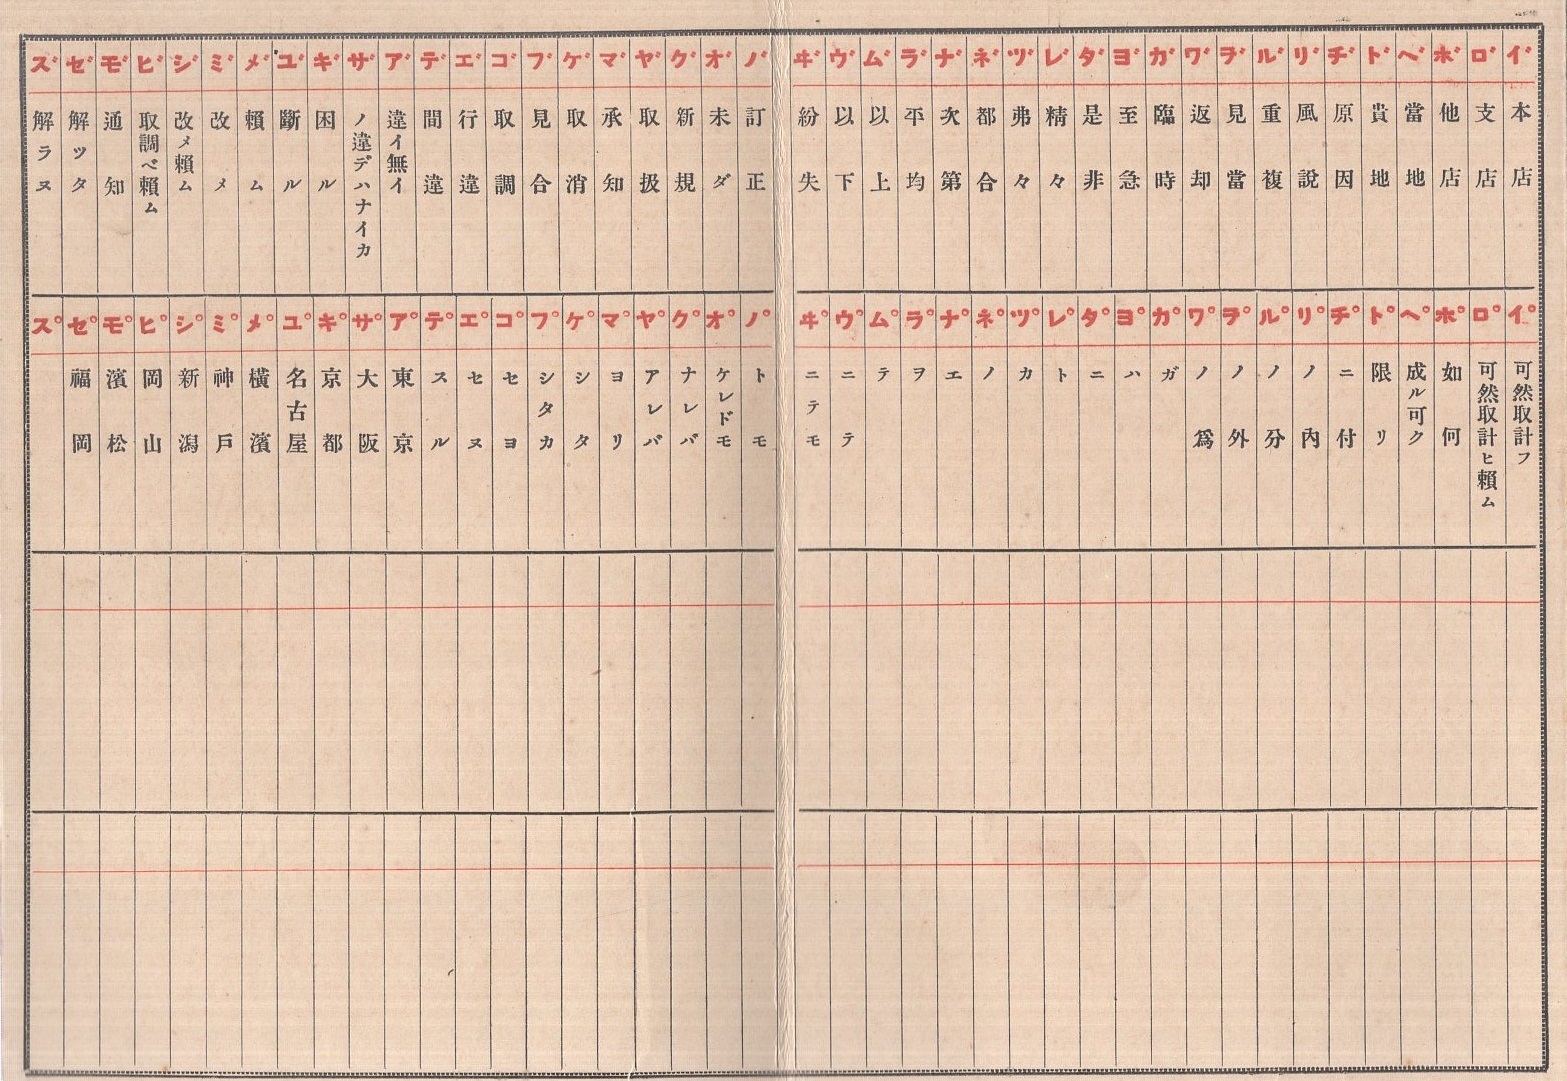 イ゛ 本店
ロ゛ 支店
ホ゛ 他店
ヘ゛ 當地
ト゛ 貴地
チ゛ 原因
リ゛ 風説
ル゛ 重複
ヲ゛ 見當
ワ゛ 返却
カ゛ 臨時
ヨ゛ 至急
タ゛ 是非
レ゛ 精々
ツ゛ 弗々
ネ゛ 都合
ナ゛ 次第
ラ゛ 平均
ム゛ 以上
ウ゛ 以下
ヰ゛ 紛失
ノ゛ 訂正
オ゛ 未ダ
ク゛ 新規
ヤ゛ 取扱
マ゛ 承知
ケ゛ 取消
フ゛ 見合
コ゛ 取調
エ゛ 行違
テ゛ 間違
ア゛ 違イ無イ
サ゛ ノ違デハナイカ
キ゛ 困ル
ユ゛ 斷ル
メ゛ 頼ム
ミ゛ 改メ
シ゛ 改メ頼ム
ヒ゛ 取調ベ頼ム
モ゛ 通知
セ゛ 解ツタ
ス゛ 解ラヌ
イ゜ 可然取計フ
ロ゜ 可然取計ヒ頼ム
ホ゜ 如何
ヘ゜ 成ル可ク
ト゜ 限リ
チ゜ ニ付
リ゜ ノ内
ル゜ ノ分
ヲ゜ ノ外
ワ゜ ノ爲
カ゜ ガ
ヨ゜ ハ
タ゜ ニ
レ゜ ト
ツ゜ カ
ネ゜ ノ
ナ゜ エ
ラ゜ ヲ
ム゜ テ
ウ゜ ニテ
ヰ゜ ニテモ
ノ゜ トモ
オ゜ ケレドモ
ク゜ ナレバ
ヤ゜ アレバ
マ゜ ヨリ
ケ゜ シタ
フ゜ シタカ
コ゜ セヨ
エ゜ セヌ
テ゜ スル
ア゜ 東京
サ゜ 大阪
キ゜ 京都
ユ゜ 名古屋
メ゜ 橫濱
ミ゜ 神戸
シ゜ 新潟
ヒ゜ 岡山
モ゜ 濱松
セ゜ 福岡
ス゜